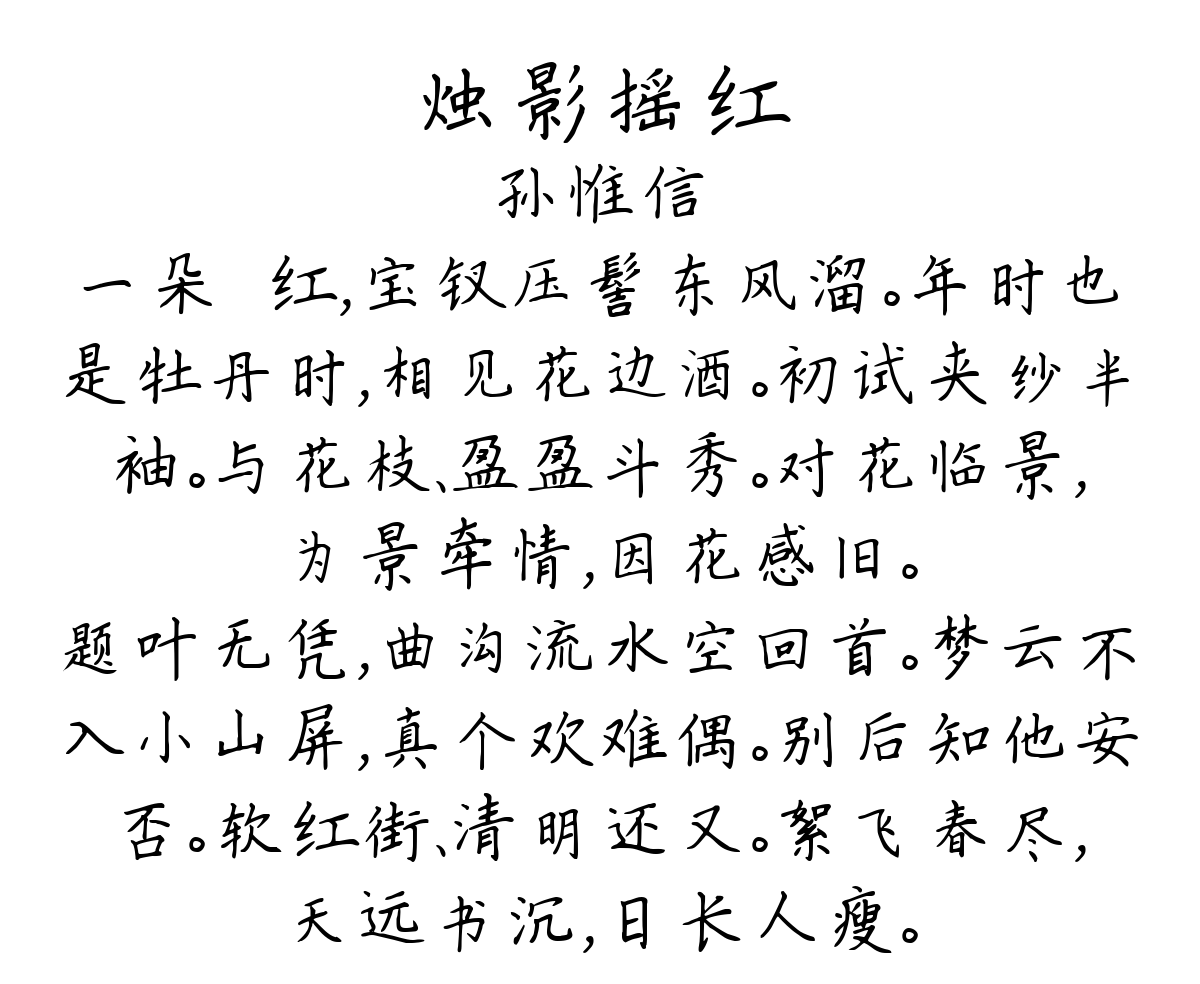 烛影摇红
孙惟信
一朵 红,宝钗压髻东风溜。年时也
是牡丹时,相见花边酒。初试夹纱半
袖。与花枝、盈盈斗秀。对花临景,
为景牵情,因花感旧。
题叶无凭,曲沟流水空回首。梦云不
入小山屏,真个欢难偶。别后知他安
否。软红街、清明还又。絮飞春尽,
天远书沉,日长人瘦。